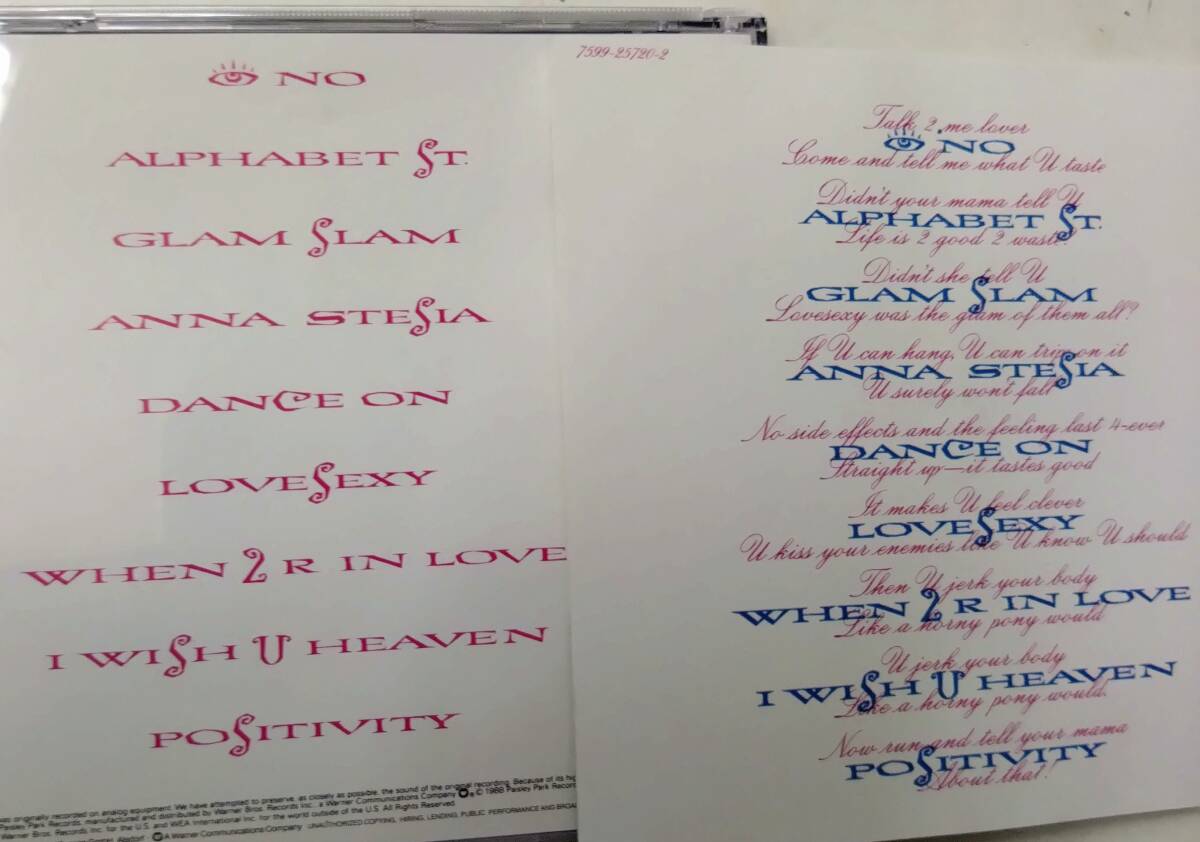 👁 NO
ALPHABET ST.
GLAM SLAM
ANNA STESIA
DANCE ON
LOVESEXY
WHEN 2 R IN LOVE
I WISH U HEAVEN
POSITIVITY
was originally recorded on analog equipment. We have attempted to preserve, as closely as possible, the sound of the original recording. Because of its hig
Paisley Park Records, manufactured and distributed by Warner Bros. Records Inc., a Warner Communications Company ℗,© 1988 Paisley Park Record
Warner Bros. Records Inc. for the U.S. and WEA International Inc. for the world outside of the U.S. All Rights Reserved.
A Warner Communications Company UNAUTHORIZED COPYING, HIRING, LENDING, PUBLIC PERFORMANCE AND BROA
7599-25720-2
Talk 2 me lover
👁 NO
Come and tell me what U taste
Didn't your mama tell U
ALPHABET ST.
Life is 2 good 2 waste?
Didn't she tell U
GLAM SLAM
Lovesexy was the glam of them all?
If U can hang, U can trip on it
ANNA STESIA
U surely won't fall
No side effects and the feeling last 4-ever
DANCE ON
Straight up—it tastes good
It makes U feel clever
LOVESEXY
U kiss your enemies like U know U should
Then U jerk your body
WHEN 2 R IN LOVE
Like a horny pony would
U jerk your body
I WISH U HEAVEN
Like a horny pony would.
Now run and tell your mama
POSITIVITY
About that!